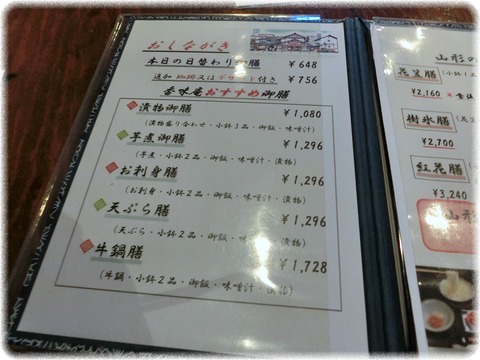 おしながき
本日の日替わり御膳 ¥648
追加 珈琲又はデザート付き ¥756
香味庵おすすめ御膳
漬物御膳 ¥1,080
(漬物盛り合わせ・小鉢1品・御飯・味噌汁)
芋煮御膳 ¥1,296
(芋煮・小鉢2品・御飯・味噌汁・漬物)
お刺身膳 ¥1,296
(お刺身・小鉢2品・御飯・味噌汁・漬物)
天ぷら膳 ¥1,296
(天ぷら・小鉢2品・御飯・味噌汁・漬物)
牛鍋膳 ¥1,728
(牛鍋・小鉢2品・御飯・味噌汁・漬物)
山形の
花笠膳
(小鉢
¥2,160
樹氷膳
¥2,700
紅花膳
¥3,240
山形